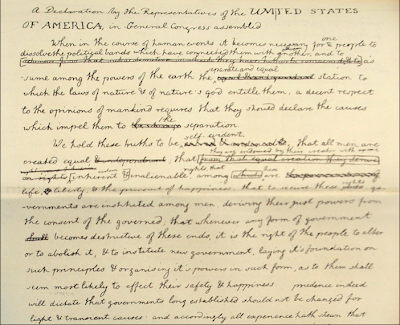 A Declaration by the Representatives of the UNITED STATES
OF AMERICA, in General Congress assembled
When in the course of human events it becomes necessary for one people to
dissolve the political bands which have connected them with another, and to
assume among the powers of the earth the separate and equal station to
which the laws of nature & of nature's god entitle them, a decent respect
to the opinions of mankind requires that they should declare the causes
which impel them to the separation
We hold these truths to be self-evident, that all men are
created equal & independent; that they are endowed by their creator with
rights that inherent & inalienable among which are
life, & liberty, & the pursuit of happiness; that to secure these go-
vernments are instituted among men, deriving their just powers from
the consent of the governed; that whenever any form of government
shall becomes destructive of these ends, it is the right of the people to alter
or to abolish it, & to institute new government, laying it's foundation on
such principles & organising it's powers in such form, as to them shall
seem most likely to effect their safety & happiness prudence indeed
will dictate that governments long established should not be changed for
light & transient causes: and accordingly all experience hath shewn that